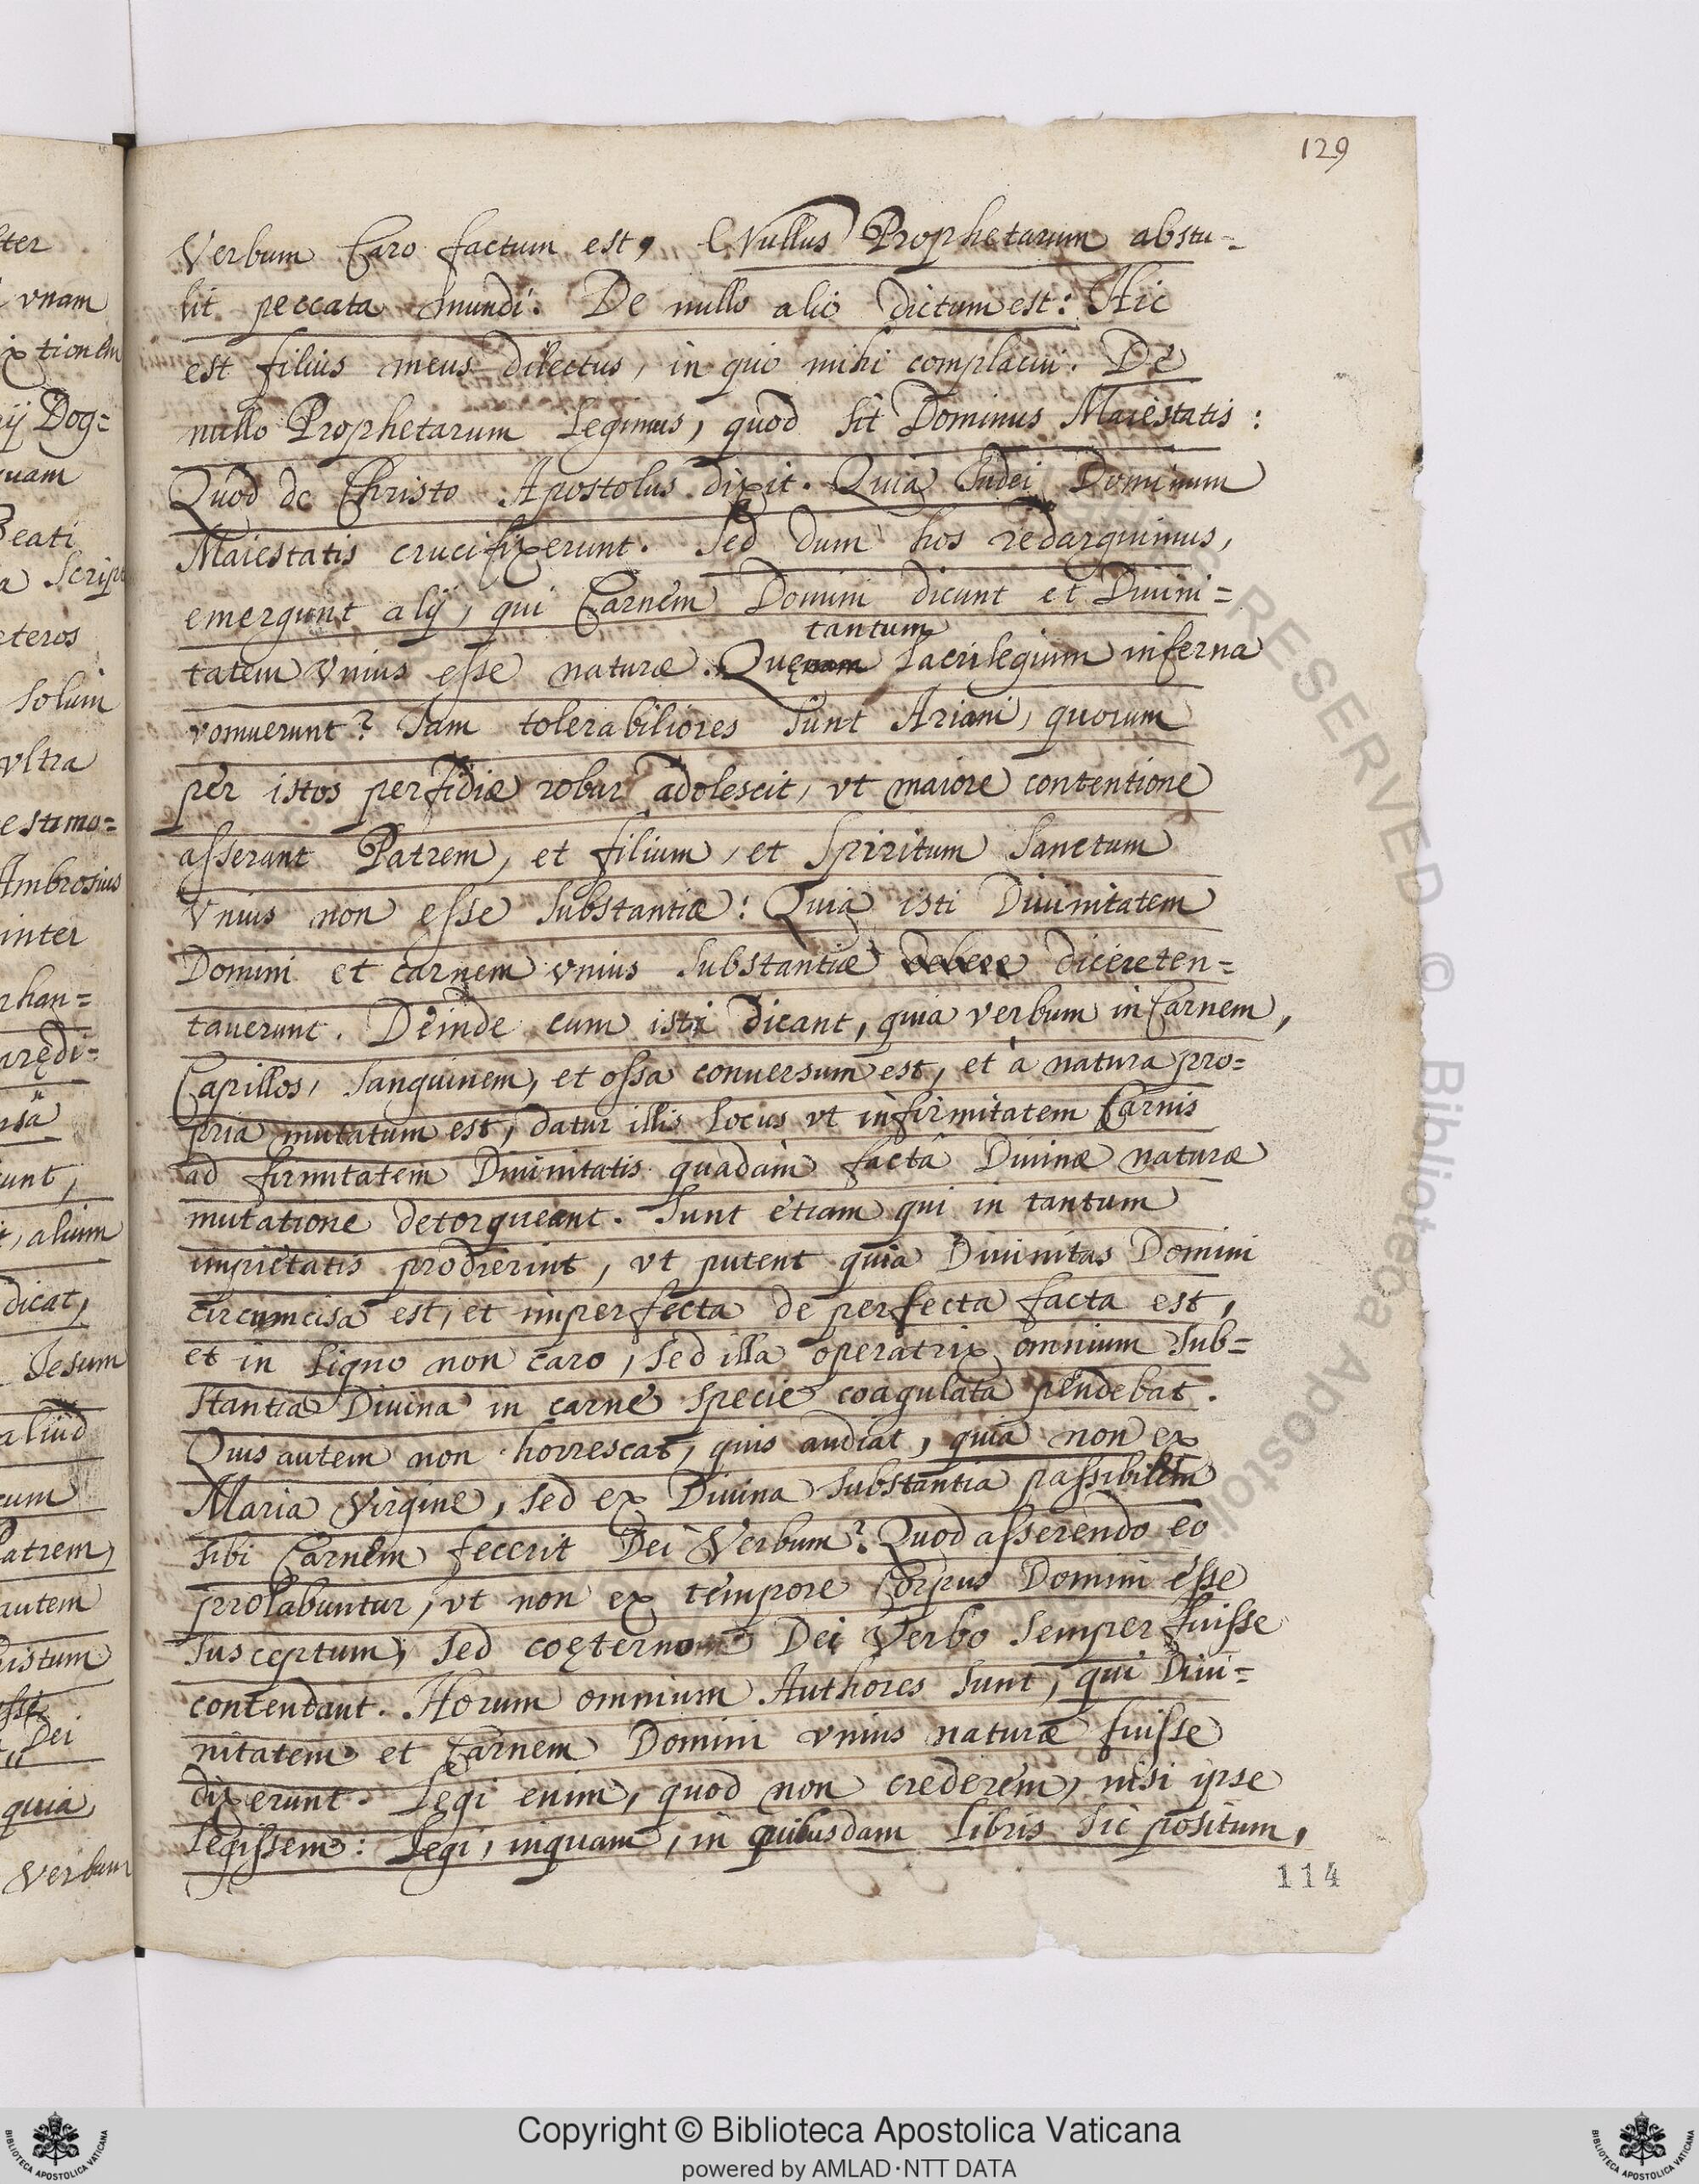 129
Verbum Caro factum est, Nullus Prophetarum abstu=
lit peccata mundi. De nullo alio dictum est: Hic
est filius meus dilectus, in quo mihi complacui. De
nullo Prophetarum Legimus, quod sit Dominus Maiestatis:
Quod de Christo Apostolus dixit. Quia Iudei Dominum
Maiestatis crucifixerunt. Sed dum hos redarguimus,
emergunt alij, qui Carnem Domini dicunt et Diuini=
tantum
tatem vnius esse naturæ. Quę sacrilegium inferna
vomuerunt? Iam tolerabiliores sunt Ariani, quorum
per istos perfidiæ robar adolescit, vt maiore contentione
asserant Patrem, et filium, et Spiritum Sanctum
vnius non esse substantiæ: Quia isti Diuinitatem
Domini et carnem vnius substantiæ debere dicere ten=
tauerunt. Deinde cum isti dicant, quia verbum in Carnem,
Capillos, Sanguinem, et ossa conuersum est, et à natura pro=
pria mutatum est, datur illis locus vt infirmitatem Carnis
ad firmitatem Diuinitatis quadam factâ Diuinæ naturæ
mutatione detorqueant. Sunt etiam qui in tantum
impietatis prodierint, vt putent quia Diuinitas Domini
circumcisa est, et imperfecta de perfecta facta est,
et in ligno non caro, sed illa operatrix omnium sub=
stantia Diuina in carne specie coagulata pendebat.
Quis autem non horrescat, quis audiat, quia non ex
Maria Virgine, sed ex Diuina substantia passibilem
sibi Carnem fecerit Dei Verbum? Quod asserendo eo
prolabuntur, vt non ex tempore Corpus Domini esse
susceptum, sed coęterno Dei Verbo semper fuisse
contendant. Horum omnium Authores sunt, qui Diui=
nitatem et Carnem Domini vnius naturæ fuisse
dixerunt. Legi enim, quod non crederem, nisi ipse
legissem: Legi, inquam, in quibusdam libris sic positum,
114
vnam
Dog=
Beati
solum
vltra
Ambrosius
inter
alium
dicat,
Iesum
aliud
Patrem,
autem
Dei
quia
Verbum
RESERVED © Biblioteca Apostoli
Copyright © Biblioteca Apostolica Vaticana
powered by AMLAD·NTT DATA
BIBLIOTECA APOSTOLICA VATICANA
BIBLIOTECA APOSTOLICA VATICANA